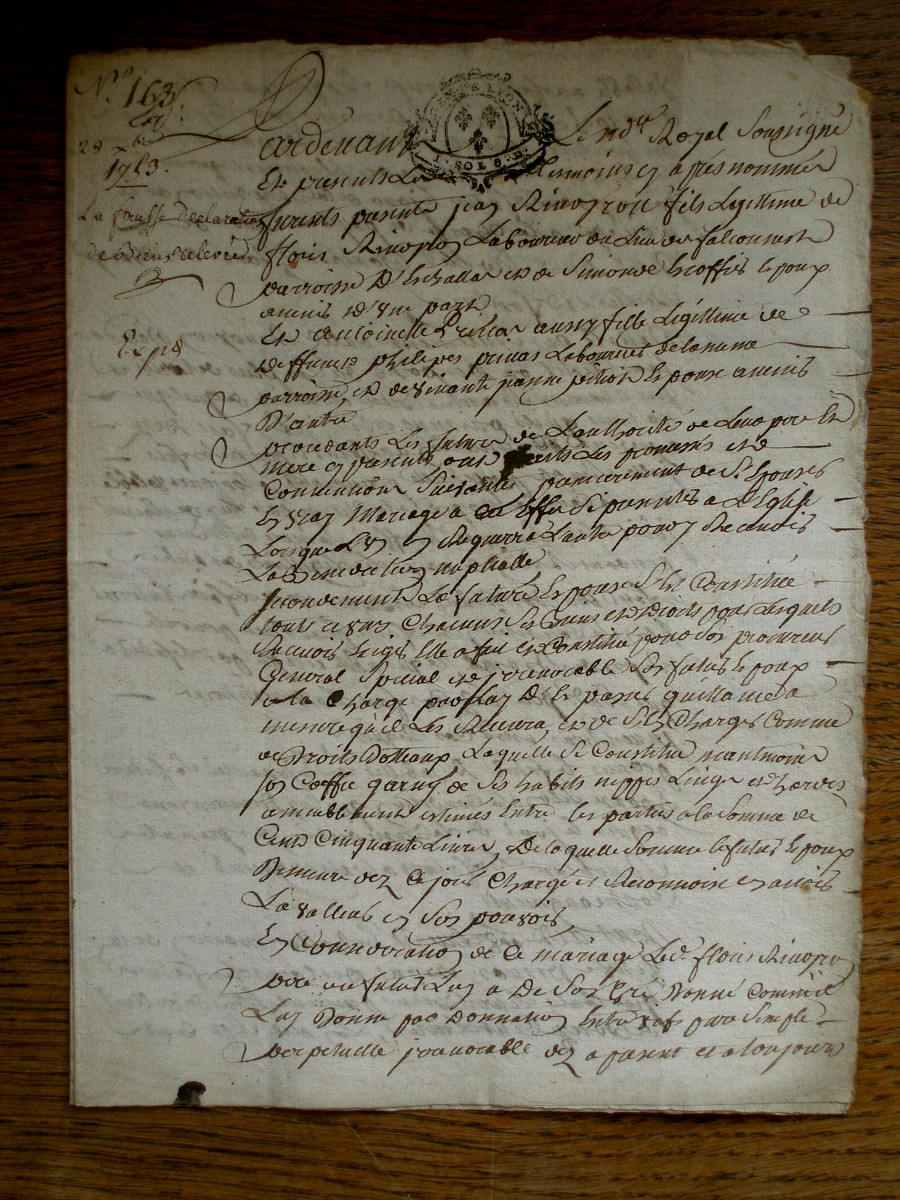 No. 163
28 xbre
1753.
La fausse declaration
de Biens relevée
Expé
Pardevant Le nore Royal Soussigné
Et presents Les Temoins cy aprés nommés
furents presents jean Rivoyron fils Legitime de
floris Rivoyron Laboureur du Lieu de falconnet
parroisse D'Echallas et de Simonde Escoffié Epoux
avenir d'une part
Et Antoinette aussy fille Legitime de
deffunct philipes privas Laboureur de la meme
parroisse, et de vivante jeanne pithiot Epouse avenir
D'autre
procedants Les futurs de Lauthorité de Leur pere Et
mere cy presents ont faits Les promesses et
Conventions Suivantes, premierement de S'Epouser
En vray Mariage a cet Effet Se presenter a L'Eglise
Lorsque L'un en Requerra Lautre pour y Recevoir
La Benediction nuptialle
secondement La future Epouse S'est Constituée
touts et uns Chacuns Ses biens et Droits pour Lesquels
Elle a fait et Constitué pour Son procureur
General Special et irrevocable Son futur Epoux
a la Charge par luy D'En passer quittance a
mesure qu'il Les Recevra, et de S'En Charger Comme
de Droits Dottaux Laquelle Se Constitue neantmoins
son Coffre garny de Ses habits nippes Linge et hardes
amiablement estimés Entre les parties a la Somme de
Cent Cinquante Livres, De laquelle Somme le futur Epoux
Demeure dez Ce jour Chargé et Reconnoit en avoir
La valleur en Son pouvoir
En Consideration de Ce mariage Led. floris Rivoyron
pere au futur Luy a De Son Gré Donné Comme il
Luy Donne par Donnation Entre vifs pure Simple
perpetuelle jrrevocable dez a present et a toujours